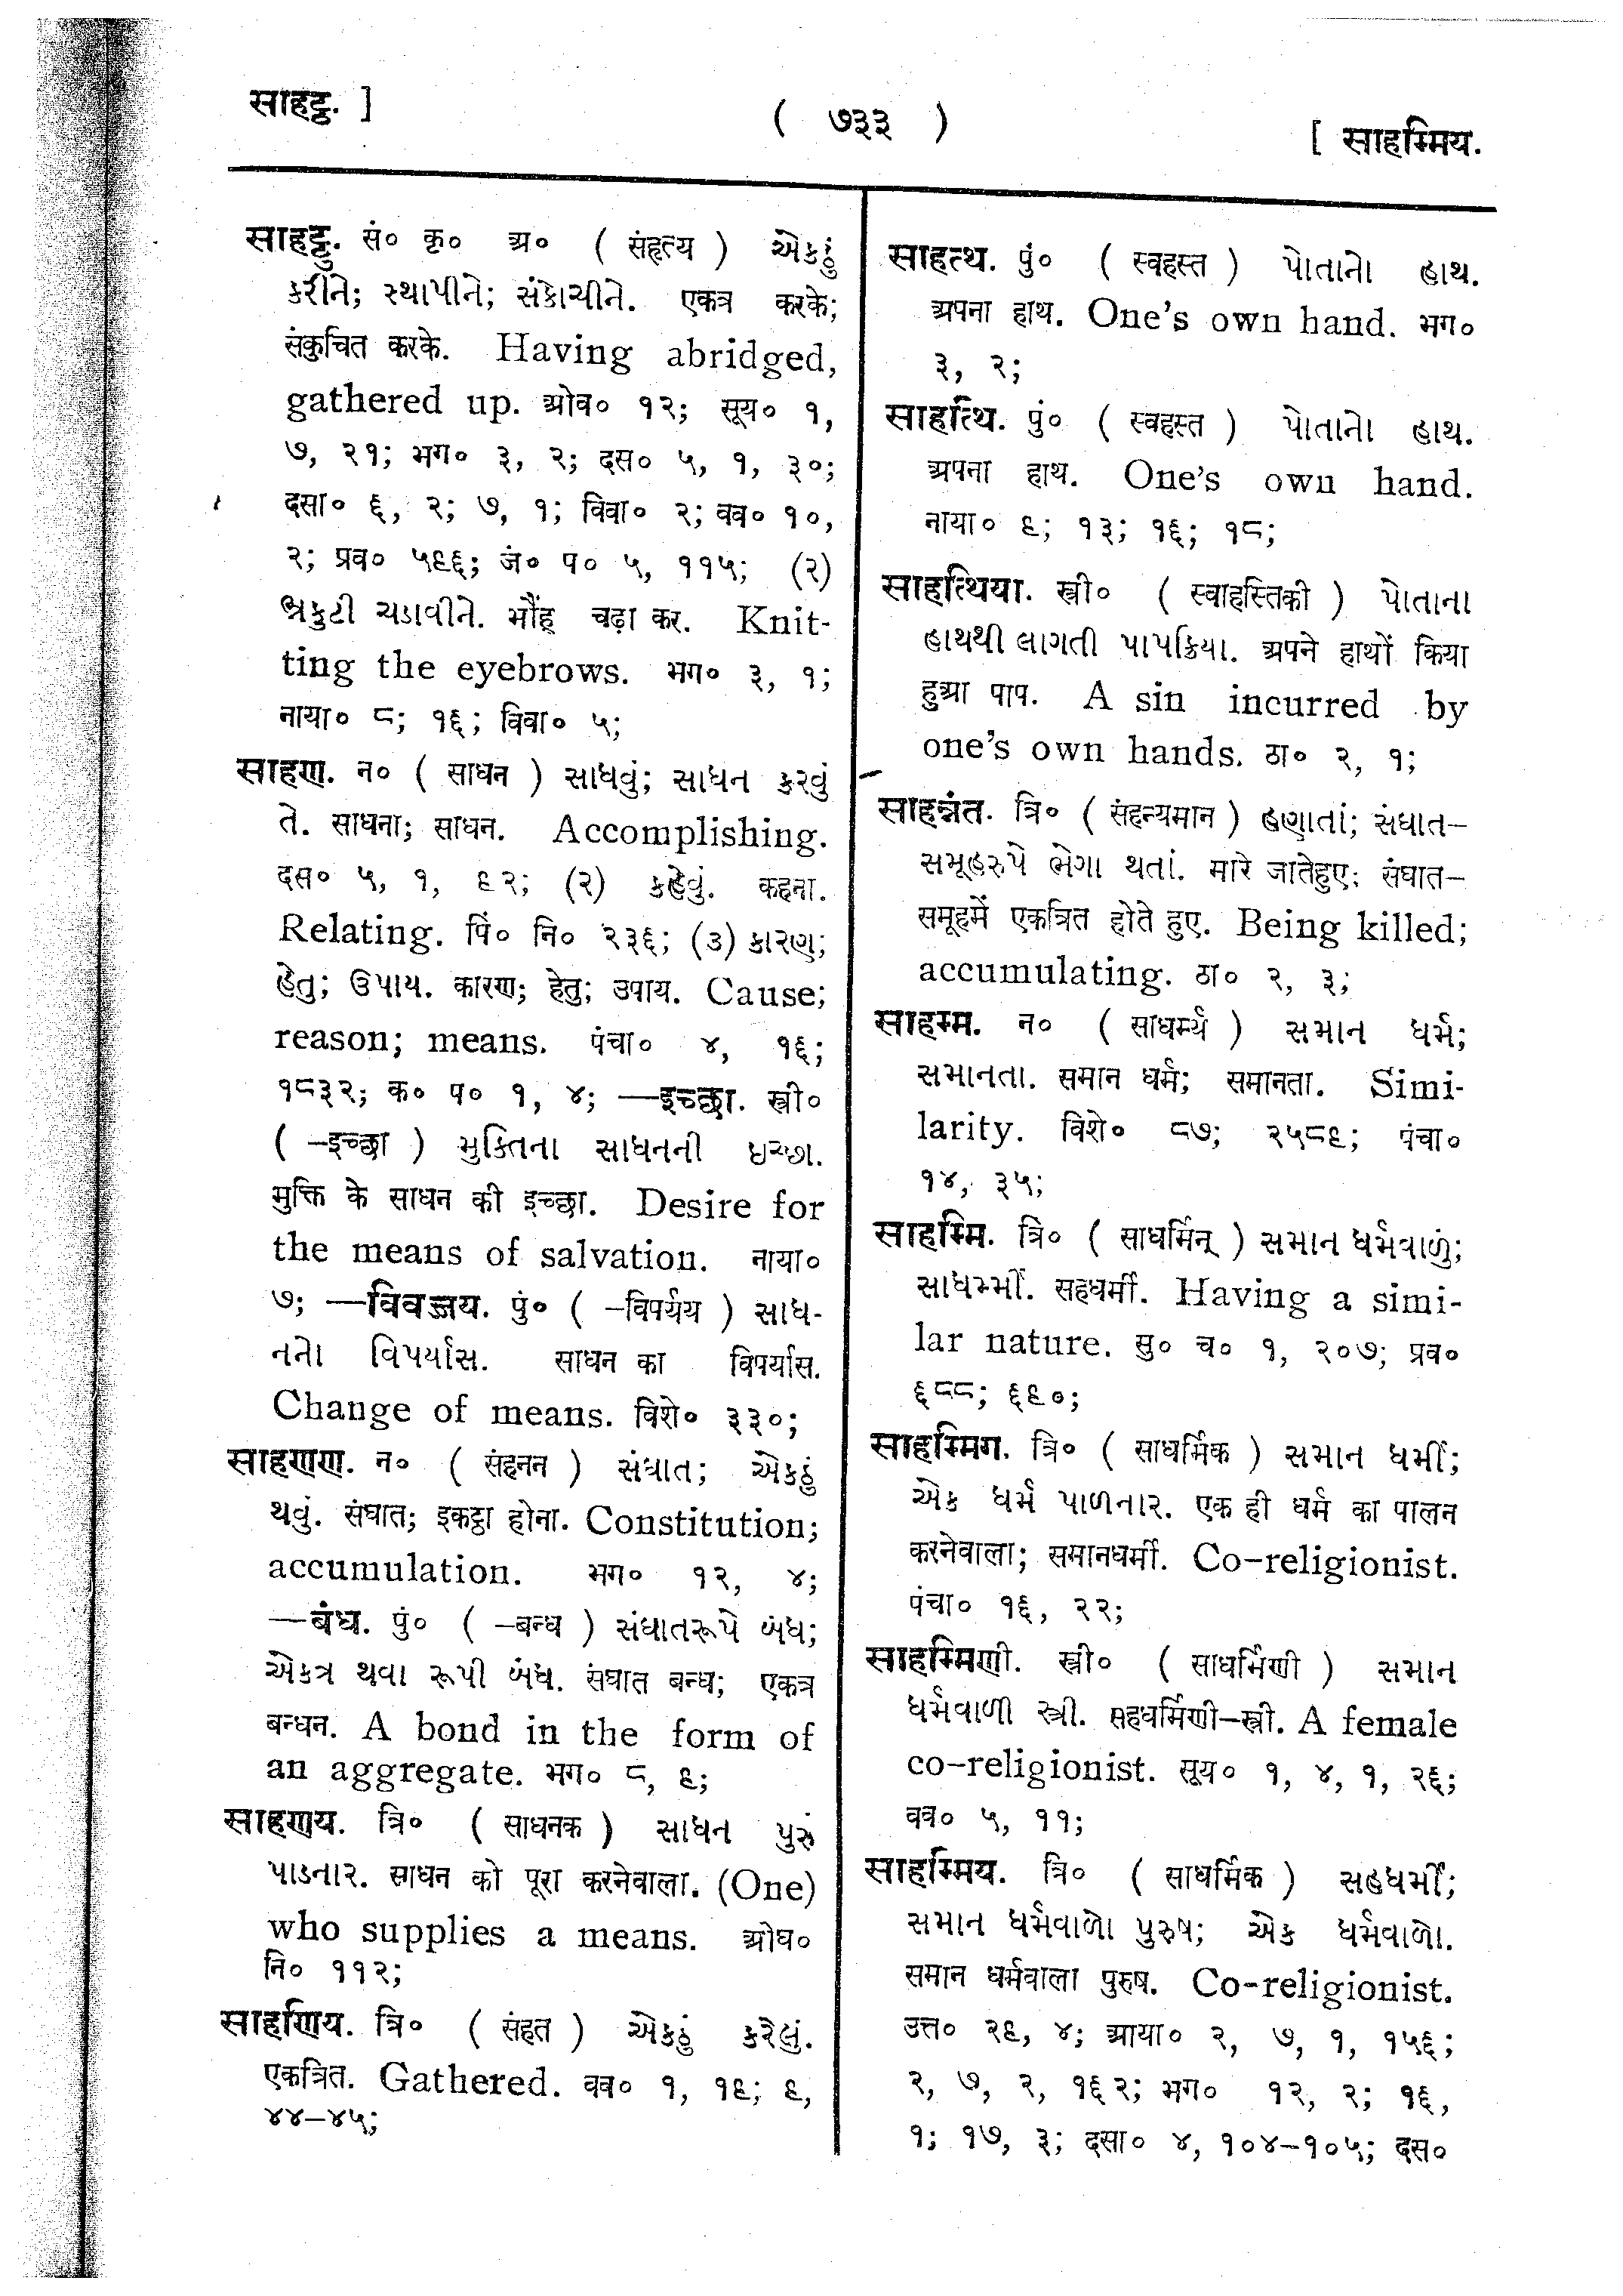 साहट्टु. ]
( ७३३ )
[ साहम्मिय.
साहट्टु. सं० कृ० अ० ( संहृत्य ) એકઠું
કરીને; સ્થાપીને; સંકોચીને. एकत्र करके;
संकुचित करके. Having abridged,
gathered up. ओव० १२; सूय० १,
७, २१; भग० ३, २; दस० ५, १, ३०;
दसा० ६, २; ७, १; विवा० २; वव० १०,
२; प्रव० ५९६; जं० प० ५, ११५; (२)
ભ્રકુટી ચડાવીને. भौंह चढ़ा कर. Knit-
ting the eyebrows. भग० ३, १;
नाया० ८; १६; विवा० ५;
साहण. न० ( साधन ) સાધવું; સાધન કરવું
તે. साधना; साधन. Accomplishing.
दस० ५, १, ९२; (२) કહેવું. कहना.
Relating. पिं० नि० २३६; (૩) કારણ;
હેતુ; ઉપાય. कारण; हेतु; उपाय. Cause;
reason; means. पंचा० ४, १६;
१८३२; क० प० १, ४; —इच्छा. स्त्री०
( –इच्छा ) મુક્તિના સાધનની ઇચ્છા.
मुक्ति के साधन की इच्छा. Desire for
the means of salvation. नाया०
७; —विवज्जय. पुं० ( –विपर्यय ) સાધ-
નનો વિપર્યાસ. साधन का विपर्यास.
Change of means. विशे० ३३०;
साहणण. न० ( संहनन ) સંઘાત; એકઠું
થવું. संघात; इकट्ठा होना. Constitution;
accumulation. भग० १२, ४;
—बंध. पुं० ( –बन्ध ) સંઘાતરૂપે બંધ;
એકત્ર થવા રૂપી બંધ. संघात बन्ध; एकत्र
बन्धन. A bond in the form of
an aggregate. भग० ८, ९;
साहणय. त्रि० ( साधनक ) સાધન પુરું
પાડનાર. साधन को पूरा करनेवाला. (One)
who supplies a means. ओघ०
नि० ११२;
साहणिय. त्रि० ( संहत ) એકઠું કરેલું.
एकत्रित. Gathered. वव० १, १९; ९,
४४–४५;
साहत्थ. पुं० ( स्वहस्त ) પોતાનો હાથ.
अपना हाथ. One's own hand. भग०
३, २;
साहत्थि. पुं० ( स्वहस्त ) પોતાનો હાથ.
अपना हाथ. One's own hand.
नाया० ९; १३; १६; १८;
साहत्थिया. स्त्री० ( स्वाहस्तिकी ) પોતાના
હાથથી લાગતી પાપક્રિયા. अपने हाथों किया
हुआ पाप. A sin incurred by
one's own hands. ठा० २, १;
साहन्नंत. त्रि० ( संहन्यमान ) હણાતાં; સંઘાત–
સમૂહરુપે ભેગા થતાં. मारे जातेहुए; संघात–
समूहमें एकत्रित होते हुए. Being killed;
accumulating. ठा० २, ३;
साहम्म. न० ( साधर्म्य ) સમાન ધર્મ;
સમાનતા. समान धर्म; समानता. Simi-
larity. विशे० ८७; २५८९; पंचा०
१४, ३५;
साहम्मि. त्रि० ( साधर्मिन् ) સમાન ધર્મવાળું;
સાધર્મ્મી. सहधर्मी. Having a simi-
lar nature. सु० च० १, २०७; प्रव०
६८८; ६९०;
साहम्मिग. त्रि० ( साधर्मिक ) સમાન ધર્મી;
એક ધર્મ પાળનાર. एक ही धर्म का पालन
करनेवाला; समानधर्मी. Co-religionist.
पंचा० १६, २२;
साहम्मिणी. स्त्री० ( साधर्मिणी ) સમાન
ધર્મવાળી સ્ત્રી. सहधर्मिणी–स्त्री. A female
co-religionist. सूय० १, ४, १, २६;
वव० ५, ११;
साहम्मिय. त्रि० ( साधर्मिक ) સહધર્મી;
સમાન ધર્મવાળો પુરુષ; એક ધર્મવાળો.
समान धर्मवाला पुरुष. Co-religionist.
उत्त० २९, ४; आया० २, ७, १, १५६;
२, ७, २, १६२; भग० १२, २; १६,
१; १७, ३; दसा० ४, १०४–१०५; दस०